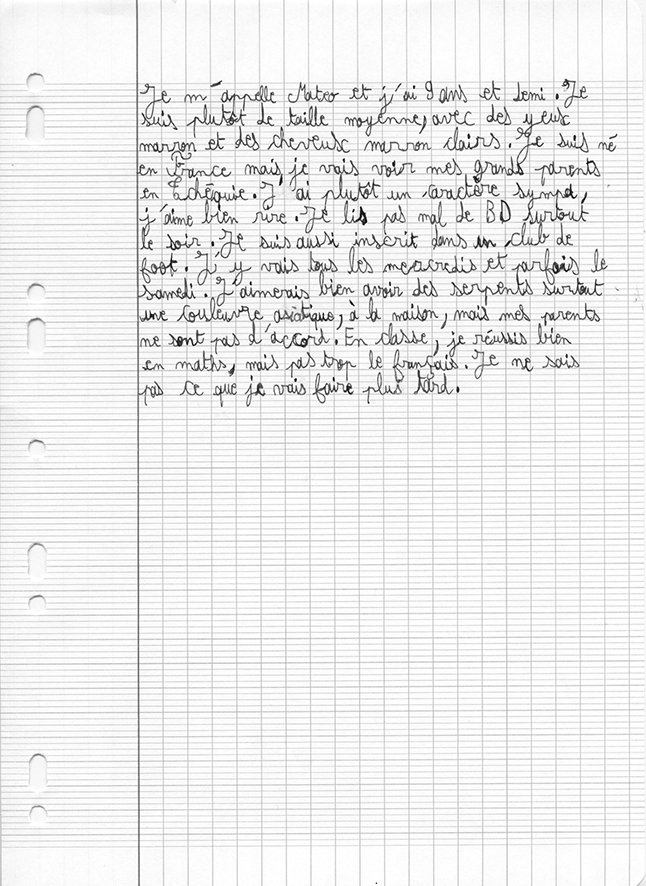 Je m'appelle Mateo et j'ai 9 ans et demi. Je
suis plutôt de taille moyenne, avec des yeux
marron et des cheveux marron clairs. Je suis né
en France mais je vais voir mes grands parents
en Tchéquie. J'ai plutôt un caractère sympa,
j'aime bien rire. Je lis pas mal de BD surtout
le soir. Je suis aussi inscrit dans un club de
foot. J'y vais tous les mercredis et parfois le
samedi. J'aimerais bien avoir des serpents surtout
une couleuvre asiatique, à la maison, mais mes parents
ne sont pas d'accord. En classe, je réussis bien
en maths, mais pas trop le français. Je ne sais
pas ce que je vais faire plus tard.